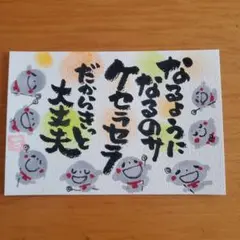 なるようになるのサ
ケセラセラ
だからきっと
大丈夫